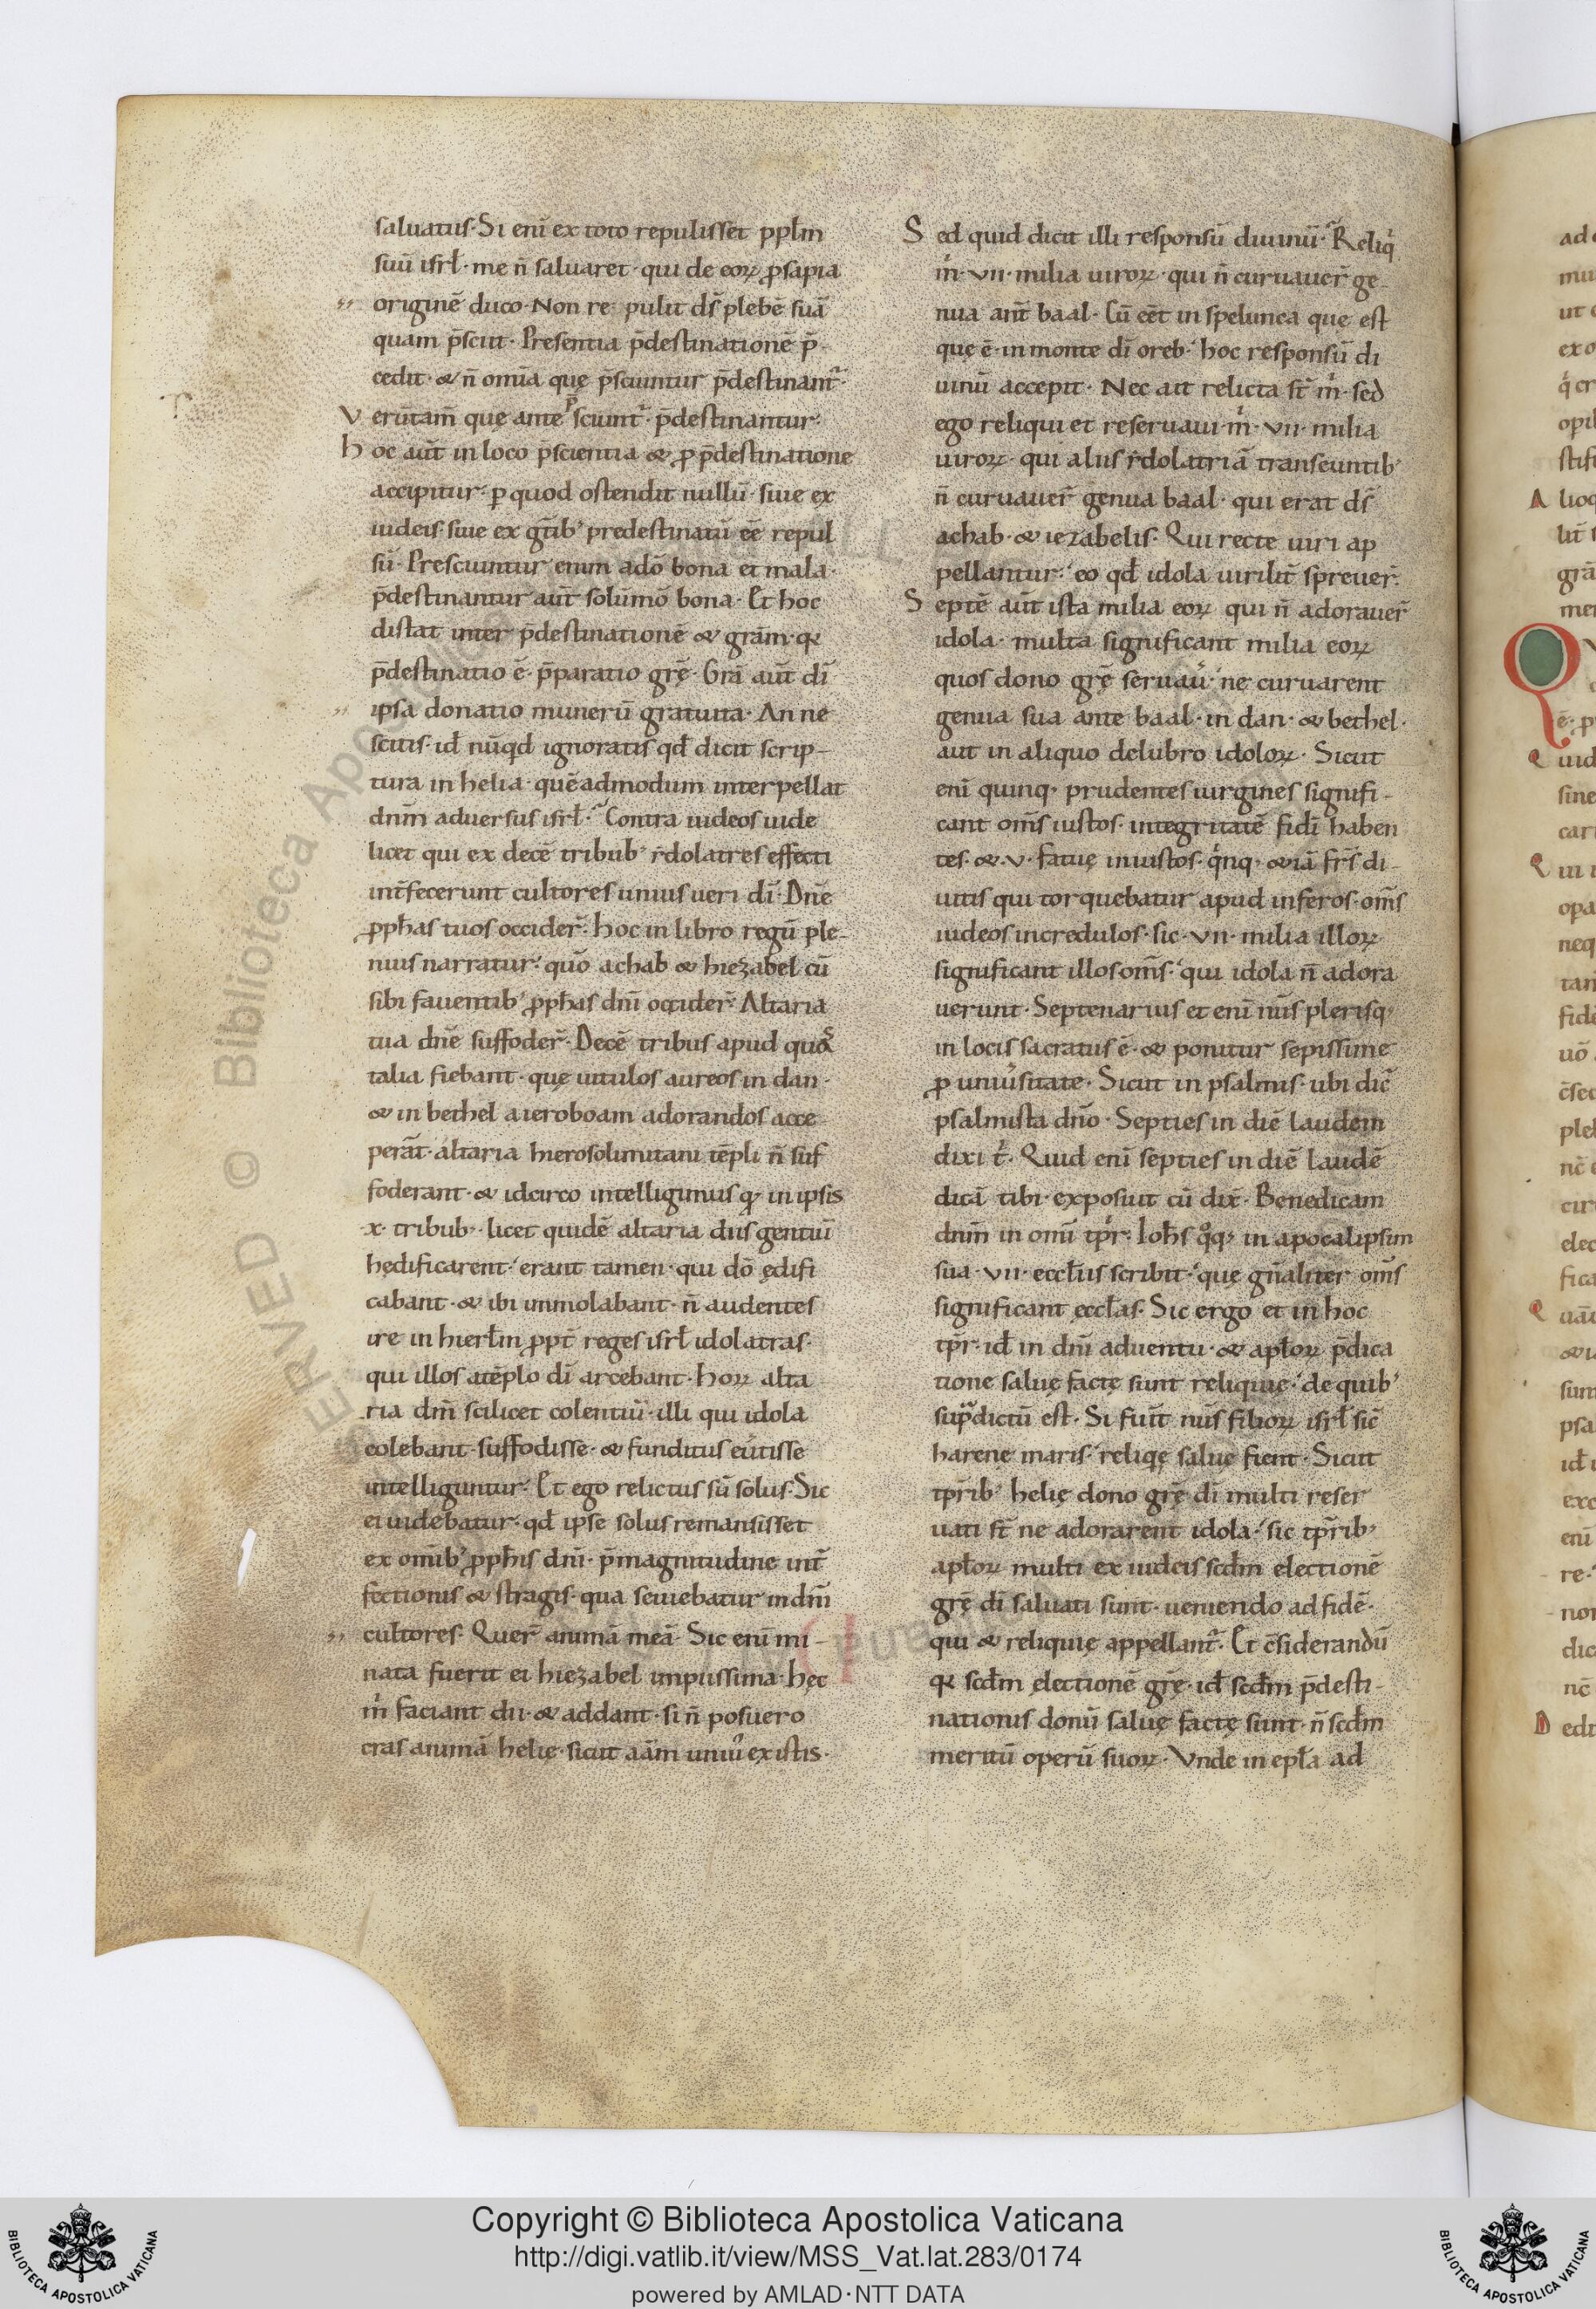 saluatus· Si enī ex toto repulisset ppl̄m
suū isrl̄· me n̄ saluaret· qui de eoꝝ ꝓsapia
originē duco· Non re pulit ds̄ plebē suā
quam p̄sciit· Presentia p̄destinationē p̄
cedit· & n̄ omīa quę p̄sciuntur p̄destinant᷑·
Verūtam̄ que ante p̄sciunt᷑ p̄destinantur·
hoc aūt in loco p̄scientia & ꝓ p̄destinatione
accipitur· ꝑ quod ostendit nullū· siue ex
iudeis· siue ex gn̄tib; predestinatū eē repul
sū· Presciuntur enim adō bona et mala·
p̄destinantur aūt solūmō bona· Et hoc
distat inter p̄destinationē & grām· qꝛ
p̄destinatio ē· p̄paratio grę̄· Grā aūt dī
ipsa donatio munerū gratuita· An ne
scitis· id̄ nūqd̄ ignoratis qd̄ dicit scrip-
tura in helia· quēadmodum interpellat
dnm̄ aduersus isrl̄· Contra iudeos uide
licet qui ex decē tribub; idolatres effecti
int̄fecerunt cultores unius ueri dī· Dnē
ꝓph̄as tuos occider̄· hoc in libro regū ple-
nius narratur· quō achab & hiezabel cū
sibi fauentib; ꝓph̄as dnī occider̄· Altaria
tua dnē suffoder̄· Decē tribus apud quas
talia fiebant· quę uitulos aureos in dan·
& in bethel a ieroboam adorandos acce
perāt· altaria hierosolimitani tēpli n̄ suf
foderant· & idcirco intelligimus qꝛ in ipsis
x· tribub; licet quidē altaria diis gentiū
hędificarent· erant tamen· qui dō ędifi
cabant· & ibi immolabant· n̄ audentes
ire in hierl̄m ꝓpt̄ reges isrl̄ idolatras·
qui illos atēplo dī arcebant· hoꝝ alta
ria dnm̄ scilicet colentiū· illi qui idola
colebant· suffodisse· & funditus eūtisse
intelliguntur· Et ego relictus sū solus· Sic
ei uidebatur· qd̄ ipse solus remansisset
ex omīb; ꝓph̄is dnī· p̄ magnitudine int̄
fectionis & stragis· qua seuiebatur in dnī
cultores· Quer̄ animā meā· Sic enī mi-
nata fuerit ei hiezabel impiissima· hęc
m̊ faciant dii· & addant· si n̄ posuero
cras animā helię· sicut aām uniū ex istis·
Sed quid dicit illi responsū diuinū· Reliq̊
m̊· vii· milia uiroꝝ· qui n̄ curuauer̄ ge-
nua ant̄ baal· Cū eēt in spelunca que est
quę ē· in monte dī oreb· hoc responsū di
uinū accepit· Nec ait relicta st̄ m̊· sed
ego reliqui et reseruaui· m̊· vii· milia
uiroꝝ· qui aliis idolatriā transeuntib;
n̄ curuauer̄ genua baal· qui erat ds̄
achab· & iezabelis· Qui recte uiri ap
pellantur· eo qd̄ idola uirilit̄ spreuer̄·
Septē aūt ista milia eoꝝ qui n̄ adorauer̄
idola· multa significant milia eoꝝ
quos dono grę̄ seruaū· ne curuarent
genua sua ante baal· in dan· & bethel·
aut in aliquo delubro idoloꝝ· Sicut
enī quinq; prudentes uirgines signifi-
cant om̄s iustos· integritatē fidī haben
tes· & v· fatuę iniustos· q̊nq; & iā fr̄s di-
uitis qui torquebatur apud inferos· om̄s
iudeos incredulos· sic· vii· milia illoꝝ
significant illos om̄s· qui idola n̄ adora
uerunt· Septenarius et enī nūs plerisq;
in locis sacratus ē· & ponitur sepissime
ꝓ uniūsitate· Sicut in psalmis· ubi dic̄
psalmista dnō· Septies in diē laudem
dixi t̊· Quid enī septies in diē laudē
dicā tibi· exposuit cū dix̄· Benedicam
dnm̄ in omī tp̄r· Ioh̄s q̊q; in apocalipsim
sua· vii· eccl̄iis scribit· quę gn̄aliter om̄s
significant ęccl̄as· Sic ergo et in hoc
tp̄r· id̄ in dnī aduentu· & apl̄oꝝ p̄dica
tione saluę factę sunt reliquię· de quib;
sup̄dictū est· Si fuīt nūs filioꝝ isrl̄ sic̄
harene maris· reliqę saluę fient· Sicut
tp̄rib; helię dono grę̄ dī multi reser
uati st̄ ne adorarent idola· sic tp̄rib;
apl̄oꝝ multi ex iudeis scd̄m electionē
grę̄ dī saluati sunt· ueniendo ad fidē·
qui & reliquię appellant᷑· Et c̄siderandū
qꝛ scd̄m ęlectionē grę̄· id̄ scd̄m p̄desti-
nationis donū saluę factę sunt· n̄ scd̄m
meritū operū suoꝝ· Vnde in epl̄a ad
Copyright © Biblioteca Apostolica Vaticana
http://digi.vatlib.it/view/MSS_Vat.lat.283/0174
powered by AMLAD·NTT DATA